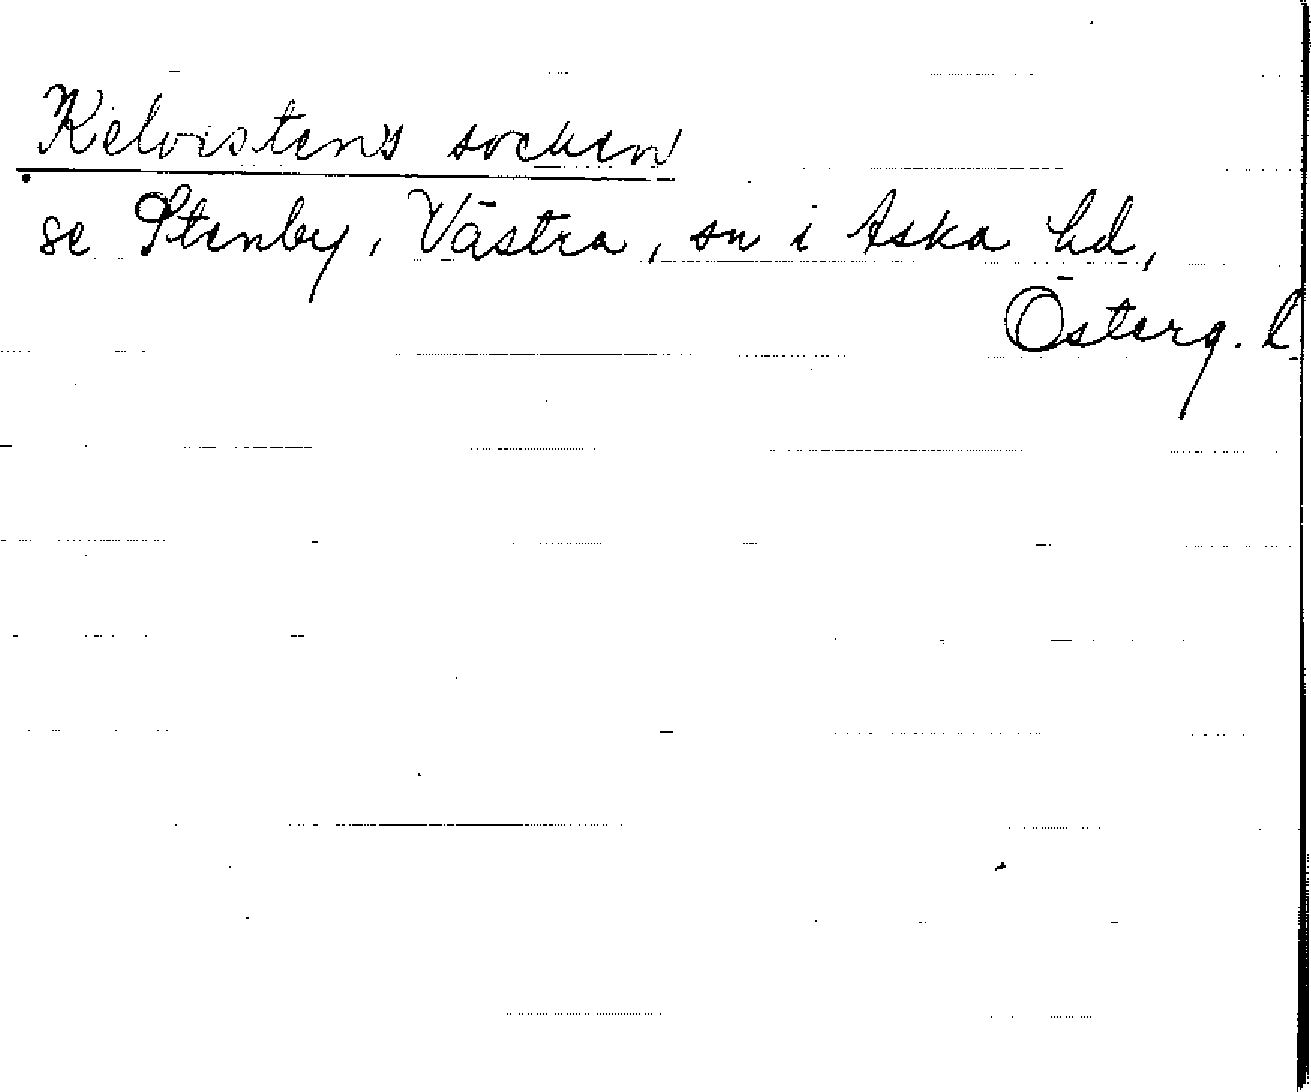 Kelvistens socken
se Stenby, Västra, sn i Aska hd,
Österg. l.